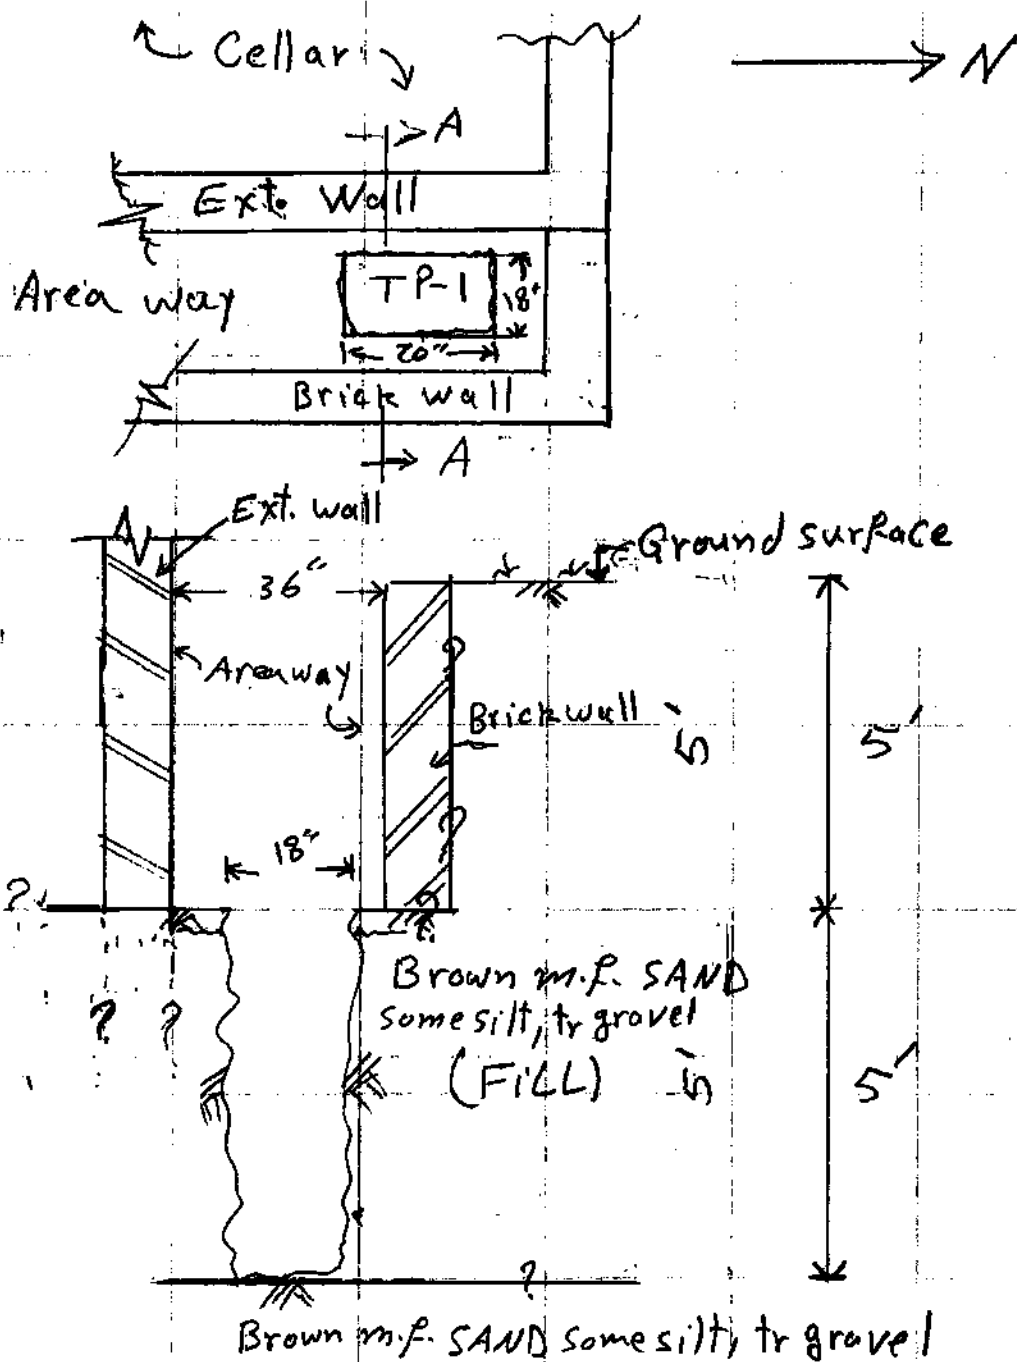 Cellar
N
A
Ext. Wall
Area way
TP-1
18"
20"
Brick wall
A
Ext. wall
Ground surface
36"
Areaway
Brick wall
5'
5'
18"
?
?
?
?
?
?
Brown m.f. SAND
some silt, tr gravel
? ?
(FILL)
5'
5'
?
Brown m.f. SAND some silt, tr gravel